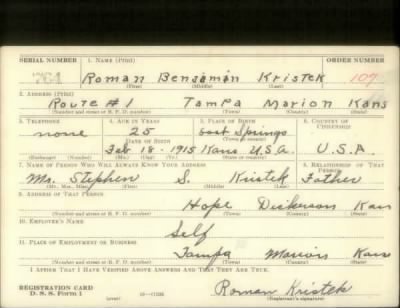 SERIAL NUMBER 1. NAME (Print) ORDER NUMBER
761 Roman Benjamin Kristek 107
(First) (Middle) (Last)
2. ADDRESS (Print)
Route #1 Tampa Marion Kans
(Number and street or R. F. D. number) (Town) (County) (State)
3. TELEPHONE 4. AGE IN YEARS 5. PLACE OF BIRTH 6. COUNTRY OF CITIZENSHIP
none 25 Lost Springs
DATE OF BIRTH (Town or county)
Feb 18 - 1915 Kans U.S.A. U.S.A.
(Exchange) (Number) (Mo.) (Day) (Yr.) (State or country)
7. NAME OF PERSON WHO WILL ALWAYS KNOW YOUR ADDRESS 8. RELATIONSHIP OF THAT PERSON
Mr. Stephen S. Kristek Father
(Mr., Mrs., Miss) (First) (Middle) (Last)
9. ADDRESS OF THAT PERSON
Hope Dickerson Kans
(Number and street or R. F. D. number) (Town) (County) (State)
10. EMPLOYER'S NAME
Self
11. PLACE OF EMPLOYMENT OR BUSINESS
Tampa Marion Kans
(Number and street or R. F. D. number) (Town) (County) (State)
I AFFIRM THAT I HAVE VERIFIED ABOVE ANSWERS AND THAT THEY ARE TRUE.
REGISTRATION CARD
D. S. S. Form 1 (over) Roman Kristek
(Registrant's signature)